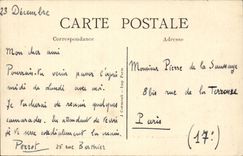 23 Décembre
CARTE POSTALE
Correspondance
Adresse
Mon cher ami
Pourrais-tu venir passer l'après
midi de lundi avec moi.
Je tacherai de reunir quelques
camarades. En attendant de te voir
je te serre cordialement la main.
Perrot 25 rue Berthier
Monsieur Pierre de la
8bis rue de la Terrasse
Paris
(17e)